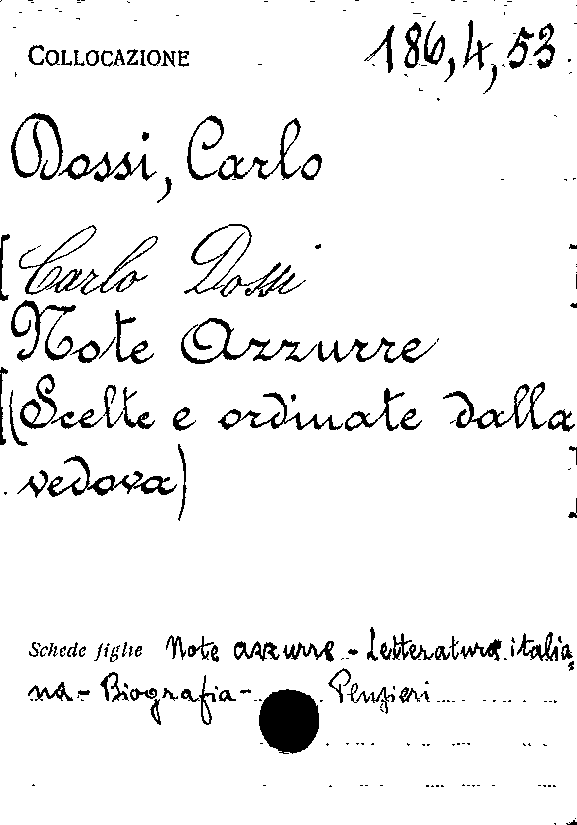 COLLOCAZIONE 186,4,53
Dossi, Carlo
[Carlo Dossi]
Note Azzurre
[(Scelte e ordinate dalla
vedova)]
Schede figlie Note azzurre - Letteratura italia
na - Biografia - Pensieri